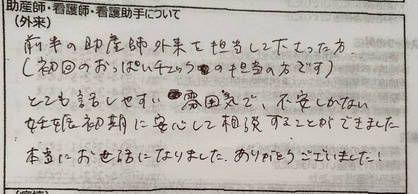 助産師・看護師・看護助手について
(外来)
前半の助産師外来を担当して下さった方
(初回のおっぱいチェックの担当の方です)
とても話しやすい雰囲気で、不安しかない
妊娠初期に安心して相談することができました
本当にお世話になりました。ありがとうございました!